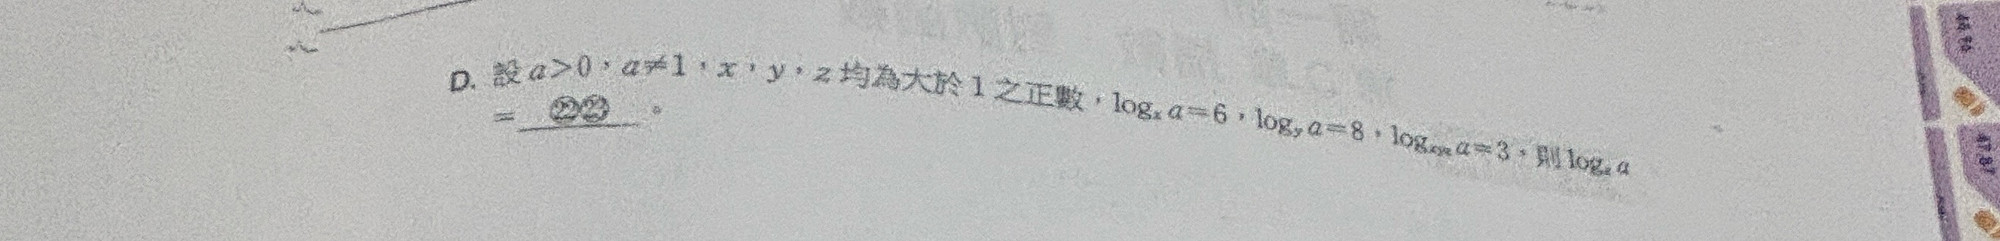 D. 設 a>0，a≠1，x，y，z 均為大於 1 之正數，logₓ a=6，log_y a=8，log_xyz a=3，則 log_z a
= ㉒㉓ 。